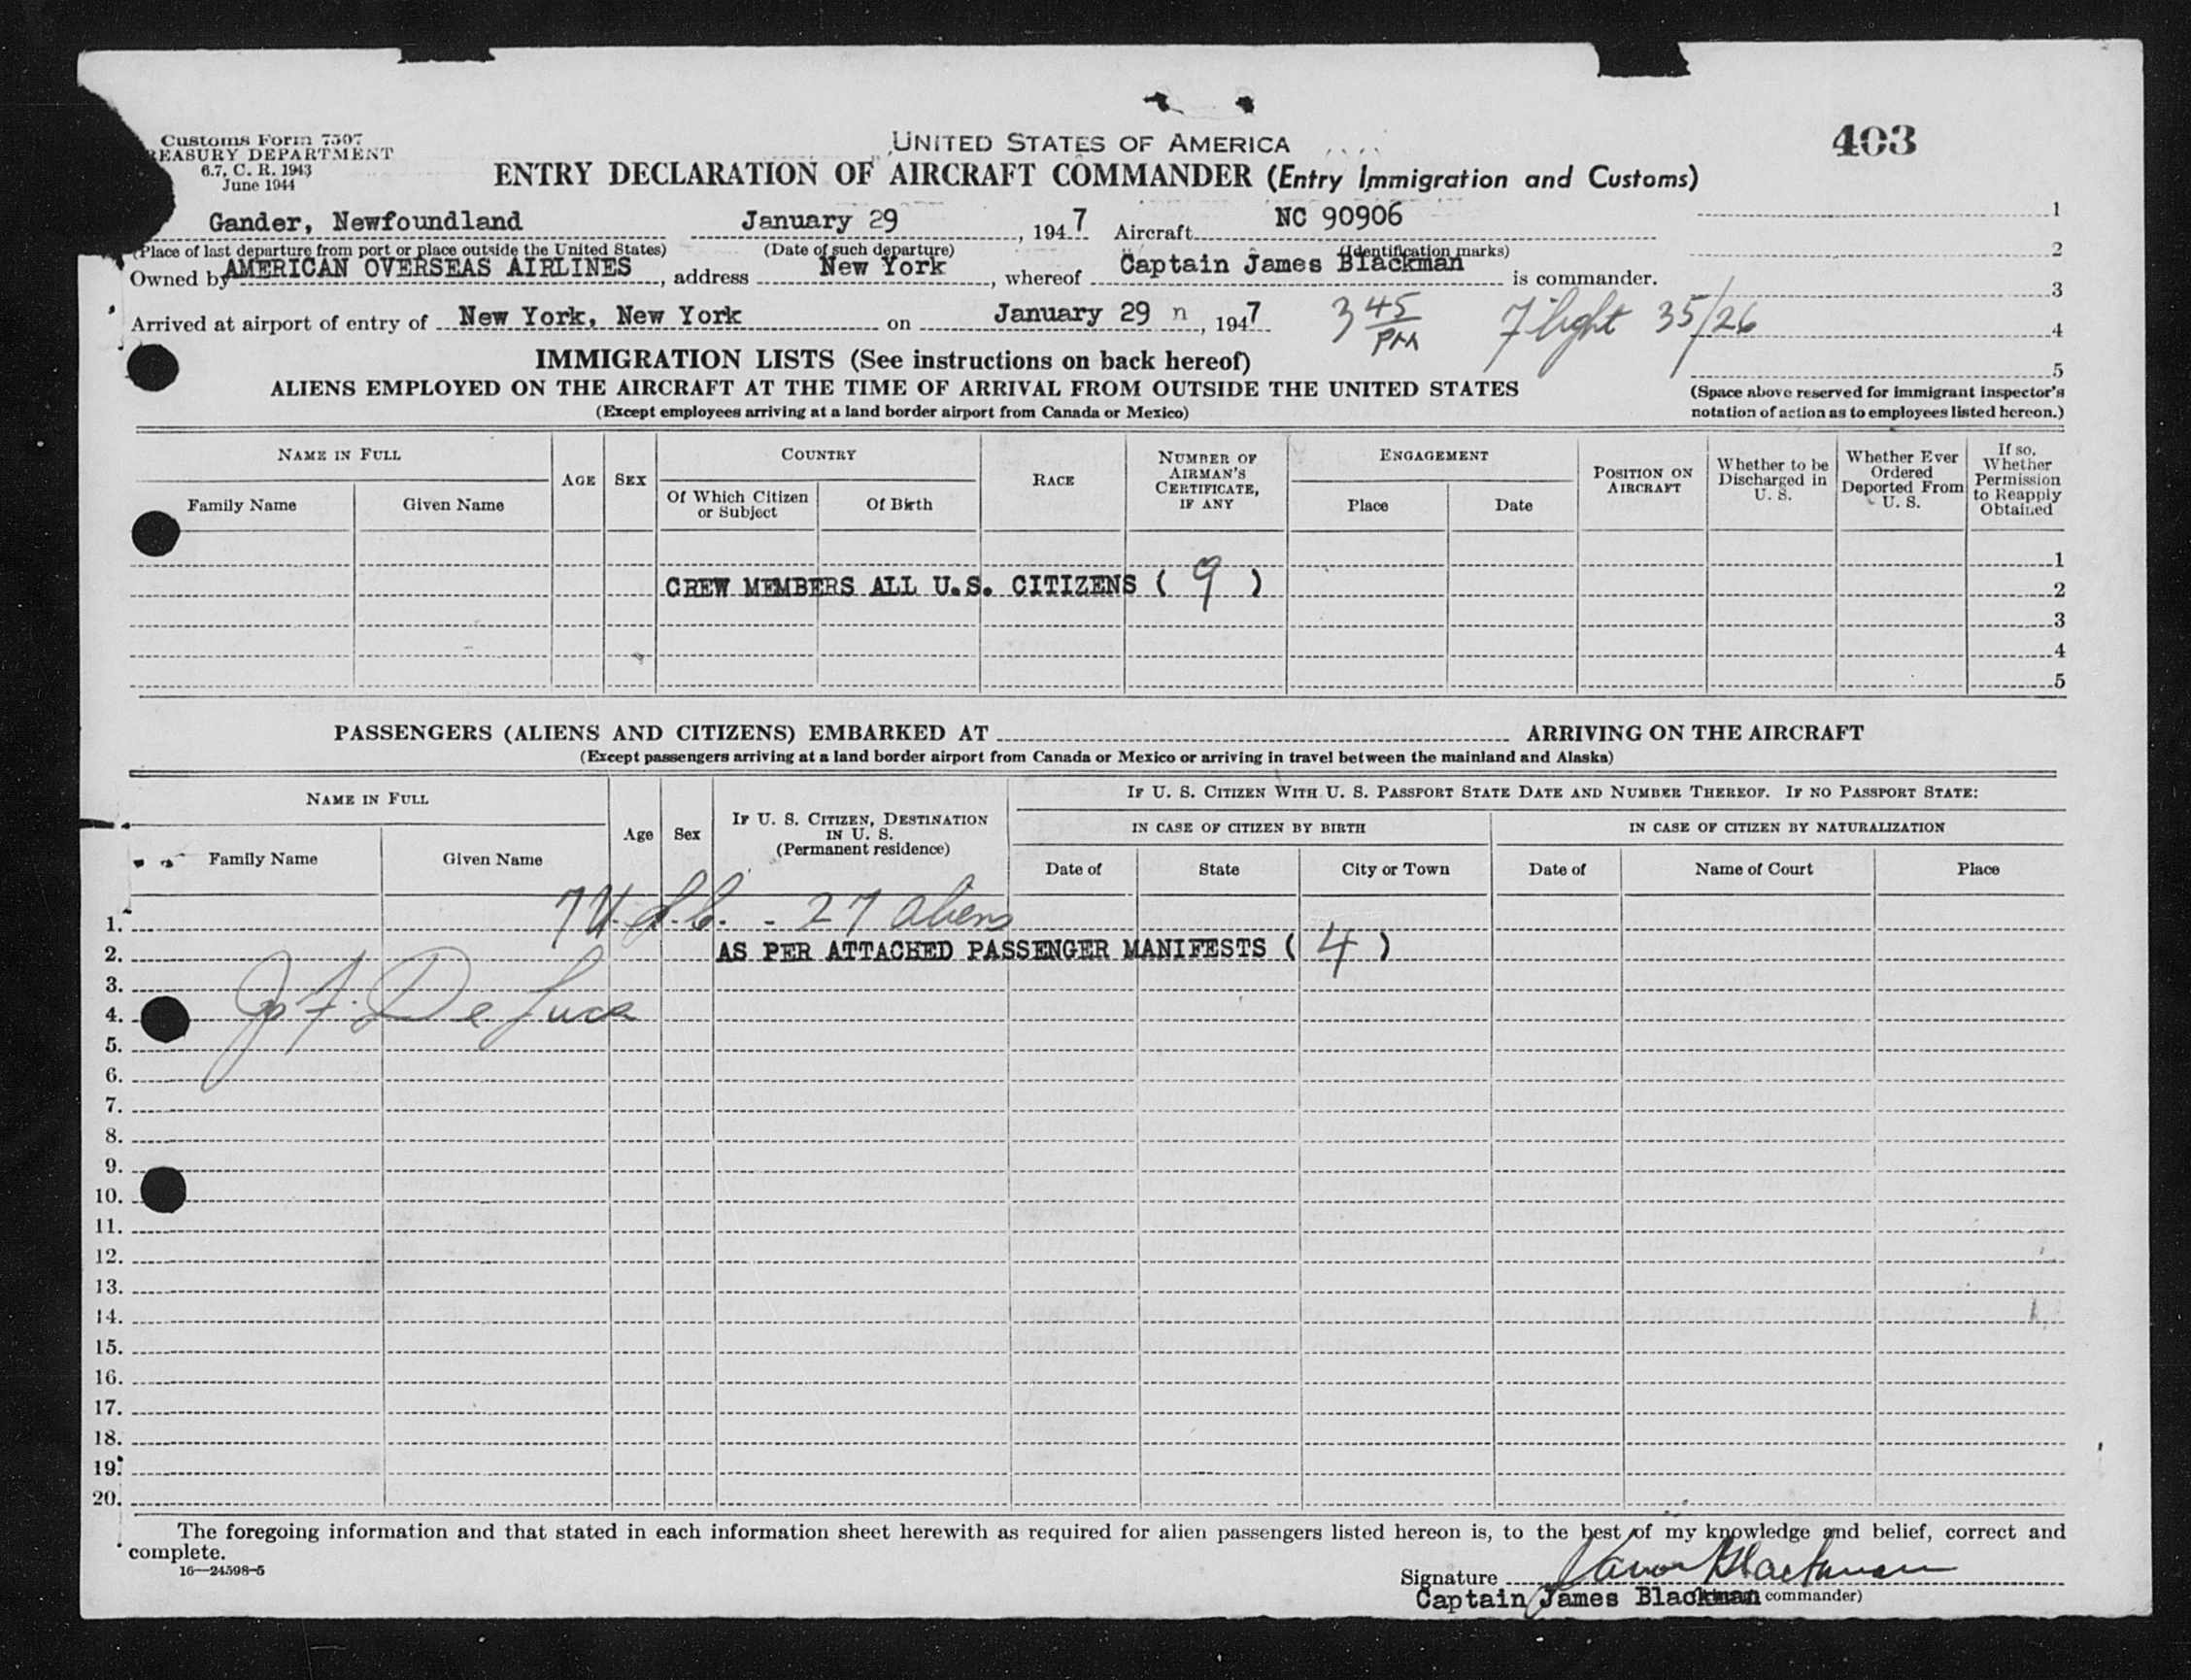 Customs Form 7507
REASURY DEPARTMENT
6.7, C. R. 1943
June 1944
UNITED STATES OF AMERICA
403
ENTRY DECLARATION OF AIRCRAFT COMMANDER (Entry Immigration and Customs)
Gander, Newfoundland January 29, 1947 Aircraft NC 90906 1
(Place of last departure from port or place outside the United States) (Date of such departure) (Identification marks) 2
Owned by AMERICAN OVERSEAS AIRLINES, address New York, whereof Captain James Blackman is commander.
3
Arrived at airport of entry of New York, New York on January 29 n, 1947 3 45 PM Flight 35/26 4
IMMIGRATION LISTS (See instructions on back hereof) 5
ALIENS EMPLOYED ON THE AIRCRAFT AT THE TIME OF ARRIVAL FROM OUTSIDE THE UNITED STATES
(Except employees arriving at a land border airport from Canada or Mexico)
(Space above reserved for immigrant inspector's
notation of action as to employees listed hereon.)
NAME IN FULL
Family Name
Given Name
AGE
SEX
COUNTRY
Of Which Citizen
or Subject
Of Birth
RACE
NUMBER OF
AIRMAN'S
CERTIFICATE,
IF ANY
ENGAGEMENT
Place
Date
POSITION ON
AIRCRAFT
Whether to be
Discharged in
U. S.
Whether Ever
Ordered
Deported From
U. S.
If so,
Whether
Permission
to Reapply
Obtained
1
CREW MEMBERS ALL U.S. CITIZENS ( 9 ) 2
3
4
5
PASSENGERS (ALIENS AND CITIZENS) EMBARKED AT ARRIVING ON THE AIRCRAFT
(Except passengers arriving at a land border airport from Canada or Mexico or arriving in travel between the mainland and Alaska)
NAME IN FULL
Family Name
Given Name
Age
Sex
IF U. S. CITIZEN, DESTINATION
IN U. S.
(Permanent residence)
IF U. S. CITIZEN WITH U. S. PASSPORT STATE DATE AND NUMBER THEREOF. IF NO PASSPORT STATE:
IN CASE OF CITIZEN BY BIRTH
IN CASE OF CITIZEN BY NATURALIZATION
Date of
State
City or Town
Date of
Name of Court
Place
1. 7 U.S.C. - 27 aliens
2. AS PER ATTACHED PASSENGER MANIFESTS ( 4 )
3.
4. De Luca
5.
6.
7.
8.
9.
10.
11.
12.
13.
14.
15.
16.
17.
18.
19.
20.
The foregoing information and that stated in each information sheet herewith as required for alien passengers listed hereon is, to the best of my knowledge and belief, correct and
complete.
16—24598-5
Signature James Blackman
Captain James Blackman commander)